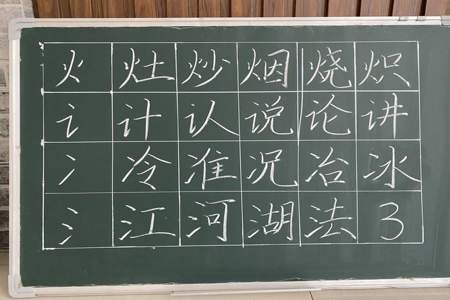 火 灶 炒 烟 烧 炽
讠 计 认 说 论 讲
冫 冷 准 况 冶 冰
氵 江 河 湖 法 3